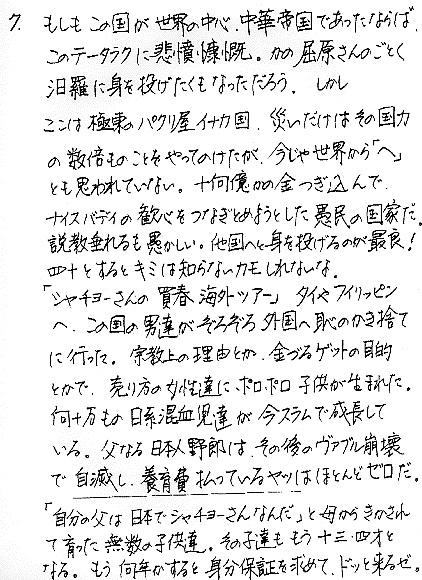 7. もしもこの国が世界の中心、中華帝国であったならば、
このテータラクに悲憤慷慨。かの屈原さんのごとく
汨羅に身を投げたくもなっただろう。しかし
ここは極東のパクリ屋イナカ国、災いだけはその国力
の数倍ものことをやってのけたが、今じゃ世界から「へ」
とも思われていない。十何億かの金つぎ込んで、
ナイスバディの歓心をつなぎとめようとした愚民の国家だ。
説教垂れるも愚かしい。他国へと身を投げるのが最良！
四十とするとキミは知らないカモしれないな。
「シャチョーさんの買春海外ツアー」タイやフィリッピン
へ、この国の男達がぞろぞろ外国へ恥のかき捨て
に行った。宗教上の理由とか、金づるゲットの目的
とかで、売り方の女性達にポロポロ子供が生まれた。
何十万もの日系混血児達が今スラムで成長して
いる。父なる日本人野郎は、その後のヴァブル崩壊
で自滅し、養育費払っているヤツはほとんどゼロだ。
「自分の父は日本でシャチョーさんなんだ」と母からきかされ
て育った無数の子供達。その子達ももう十三、四才と
なる。もう何年かすると身分保証を求めて、ドッと来るぜ。